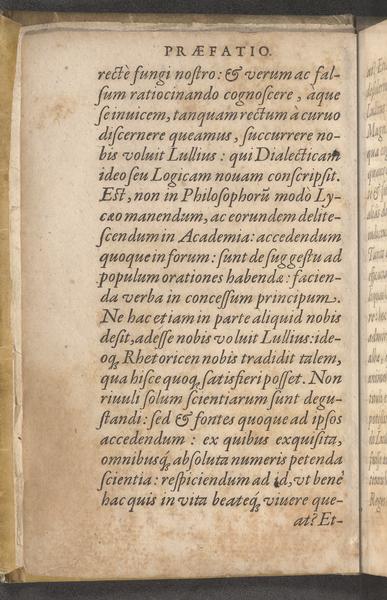 PRÆFATIO.
rectè fungi noſtro: & verum ac fal-
ſum ratiocinando cognoſcere, àque
ſe inuicem, tanquam rectum à curuo
diſcernere queamus, ſuccurrere no-
bis voluit Lullius: qui Dialecticam
ideo ſeu Logicam nouam conſcripſit.
Eſt, non in Philoſophorũ modò Ly-
cæo manendum, ac eorundem delite-
ſcendum in Academia: accedendum
quoque in forum: ſunt de ſuggeſtu ad
populum orationes habendæ: facien-
da verba in conceſſum principum.
Ne hac etiam in parte aliquid nobis
deſit, adeſſe nobis voluit Lullius: ide-
oq; Rhetoricen nobis tradidit talem,
qua hiſce quoq; ſatisfieri poſſet. Non
riuuli ſolum ſcientiarum ſunt degu-
ſtandi: ſed & fontes quoque ad ipſos
accedendum: ex quibus exquiſita,
omnibusq; abſoluta numeris petenda
ſcientia: reſpiciendum ad id, vt benè
hac quis in vita beateq; viuere que-
at? Et-